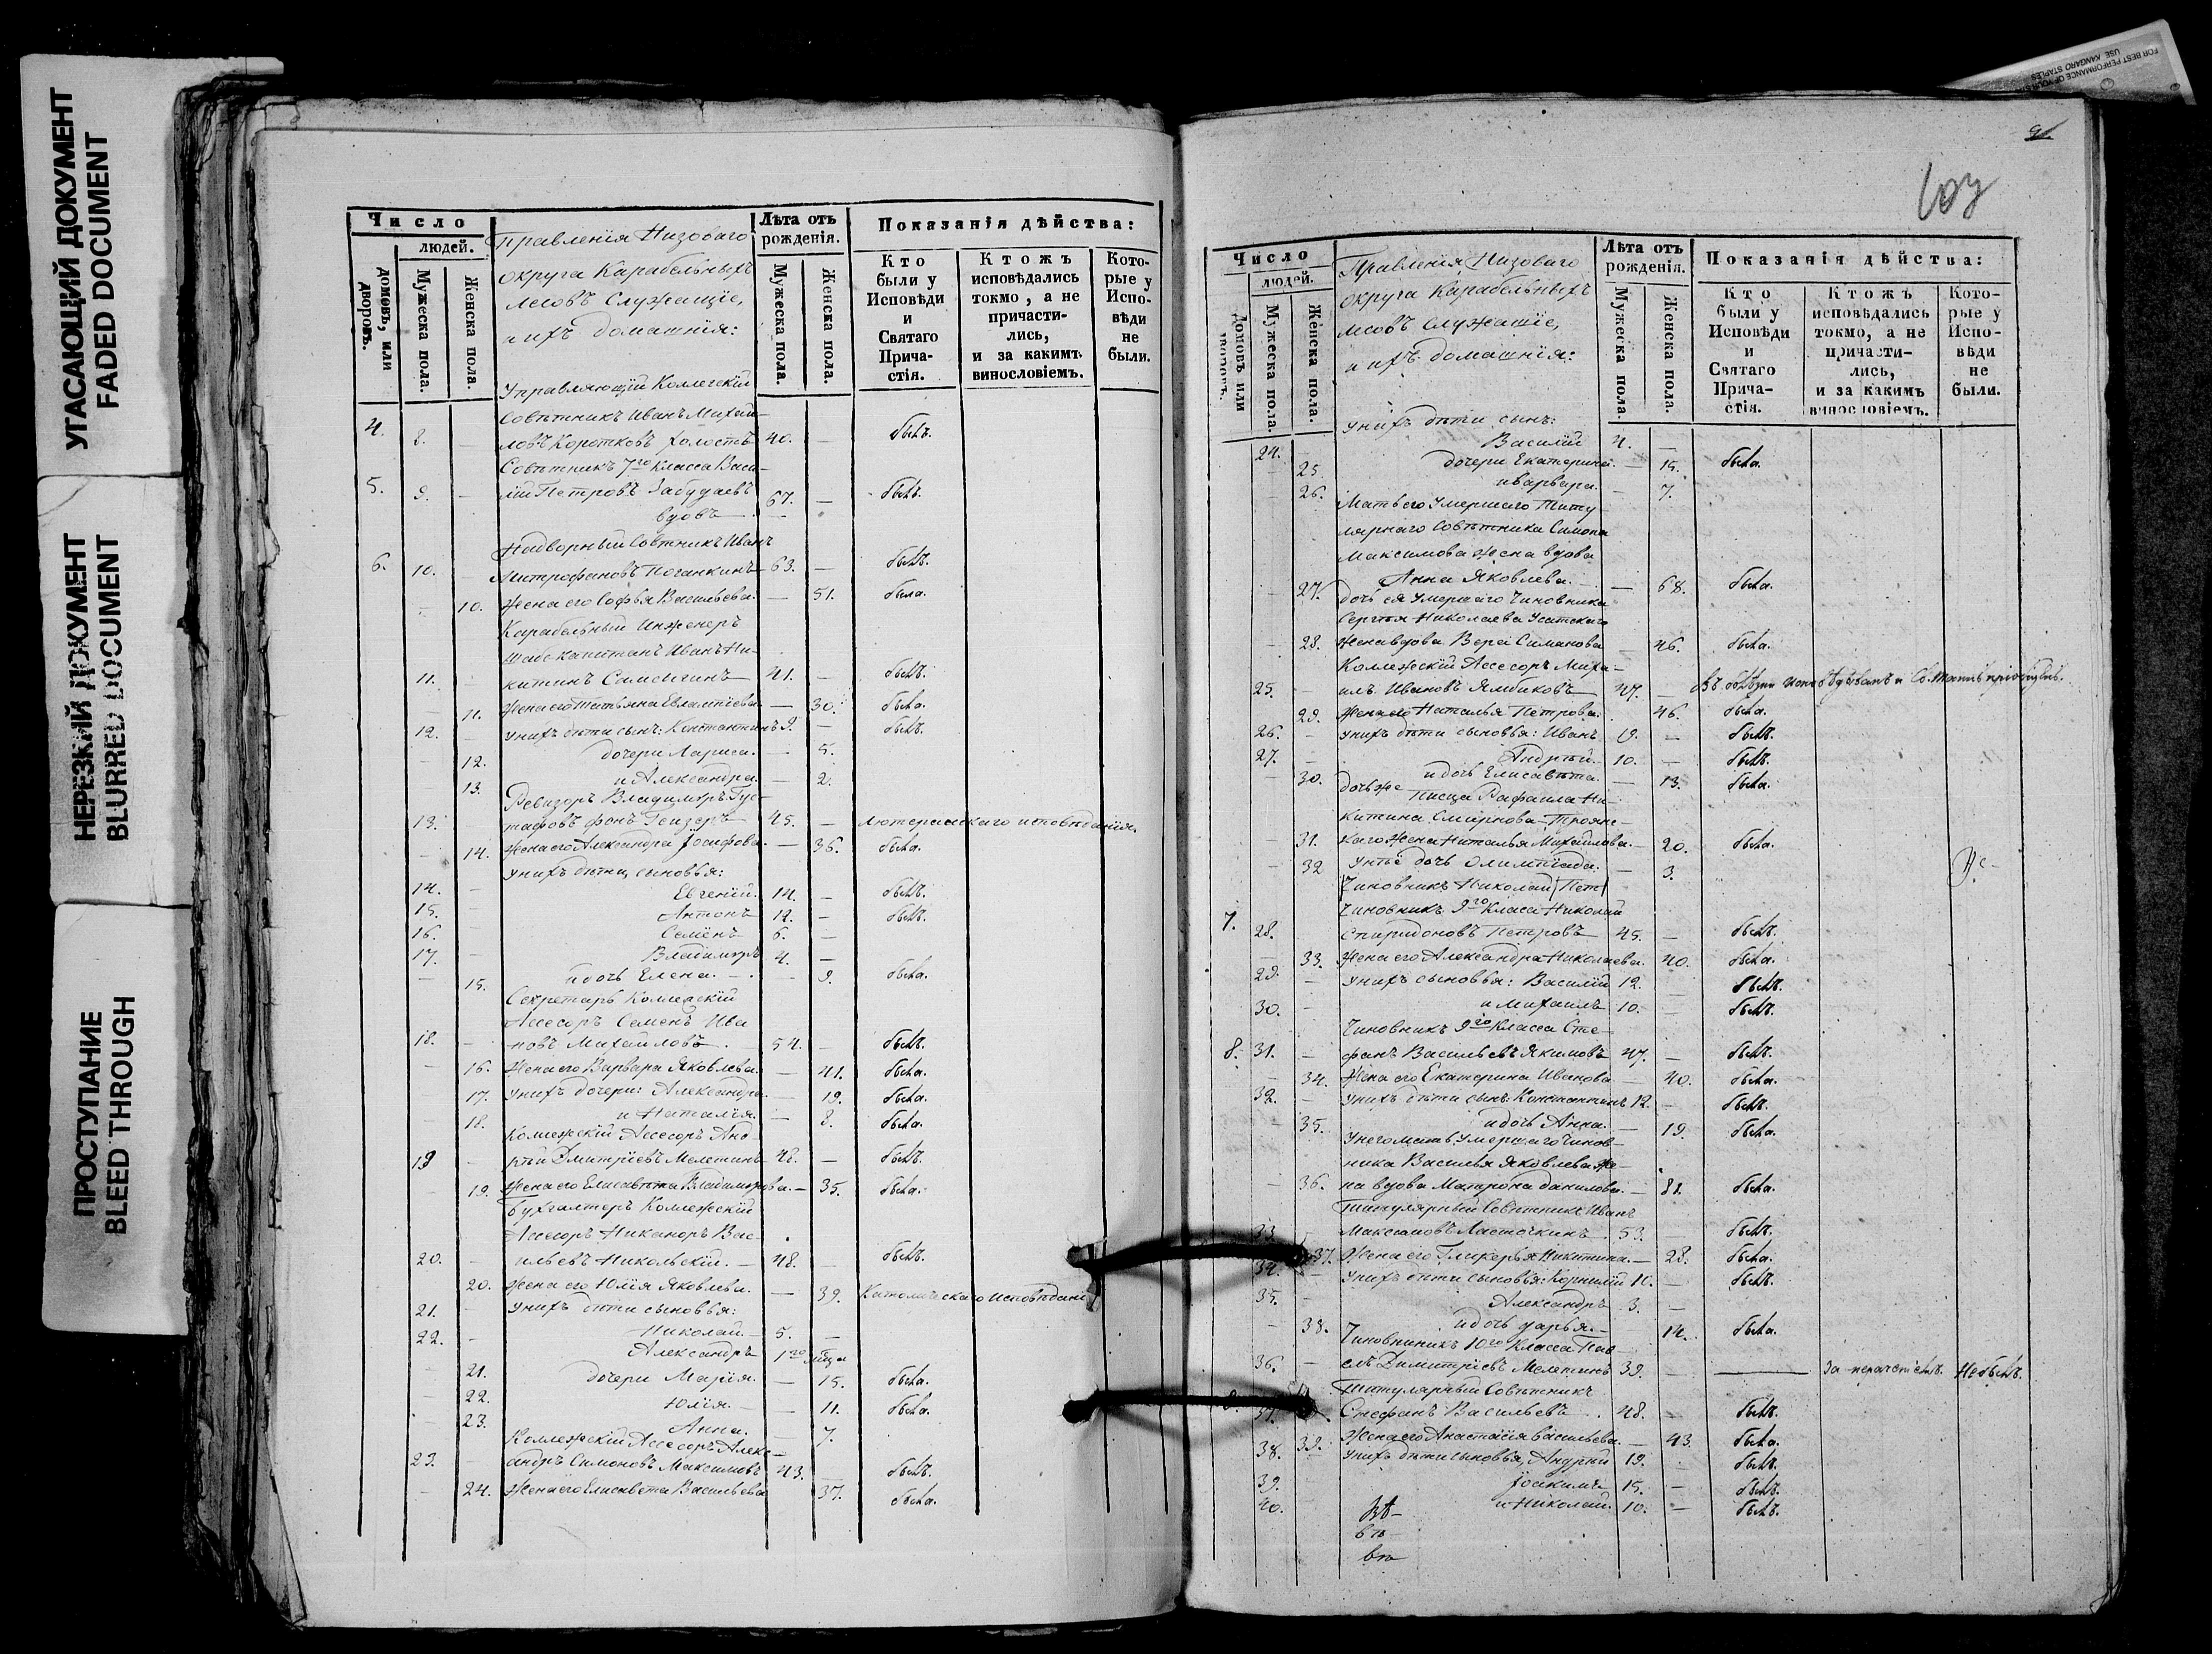 УГАСАЮЩИЙ ДОКУМЕНТ
FADED DOCUMENT
НЕРЕЗКИЙ ДОКУМЕНТ
BLURRED DOCUMENT
ПРОСТУПАНИЕ
BLEED THROUGH
Число
людей.
домовъ, или дворовъ.
Мужеска пола.
Женска пола.
Правленія Низоваго
округа Карабельныхъ
лесовъ Служащіе,
ихъ домашнія:
Лѣта отъ рожденія.
Мужеска пола.
Женска пола.
Показанія дѣйства:
Кто были у Исповѣди и Святаго Причастія.
Ктожъ исповѣдались токмо, а не причастились, и за какимъ винословіемъ.
Которые у Исповѣди не были.
Управляющій Коллегскій
Совѣтникъ Иванъ Михай-
4. 8. ловъ Коротковъ холостъ 40. — былъ.
Совѣтникъ 7го класса Васи-
5. 9. — лій Петровъ 67. — былъ.
вдовъ
Надворный Совтникъ Иванъ
6. 10. Митрофановъ Поганкинъ 63. — былъ.
— 10. Жена его Софья Васильева — 51. была.
Карабельный Инженеръ
Штабс капитанъ Иванъ Ни-
11. — китинъ 41. — былъ.
— 11. Жена его Татьяна Евлампіева — 30. была.
12. — у нихъ дѣти сынъ: Константинъ 9. — былъ.
— 12. дочери Лариса. — 5.
— 13. и Александра. — 2.
Ревизоръ Владимиръ Гус-
13. тафовъ фонъ 45. — лютеранскаго исповѣданія.
— 14. Жена его Александра Іосифова. — 36. была.
у нихъ дѣти сыновья:
14. — Евгеній. 14. — былъ.
15. — Антонъ 12. — былъ.
16. — Семёнъ 6. —
17. — Владимиръ 4. —
— 15. и дочь Елена. — 9. была.
Секретарь Коллежскій
Асесоръ Семенъ Ива
18. — новъ Михайловъ. 54. — былъ.
— 16. Жена его Варвара Яковлева. — 41. была.
17. у нихъ дочери: Александра. — 19. была.
18. и Наталія. — 8. была.
Коллежскій Асесоръ Анд-
19 — рѣй Дмитріевъ Мелетинъ 48. — былъ.
19. Жена его Елисавета Владимирова. — 35. была.
Бухгалтеръ Коллежскій
Асесоръ Никаноръ Вас-
20. — ильевъ Никольскій. — 48. — былъ.
20. Жена его Юлія Яковлева. — 39. Католическаго исповѣдані
21. — у нихъ дѣти сыновья:
Николай. — 5. —
22. — Александръ 1го мѣца
— 21. дочери Марія. — 15. была.
— 22. Юлія. — 11. была.
— 23. Анна. — 7.
Коллежскій Асесоръ Алекс-
23. — андръ Симоновъ Максимовъ 43. — былъ.
— 24. Жена его Елисавета Васильева 37. была.
Число
людей.
Домовъ или дворовъ.
Мужеска пола.
Женска пола.
Правленія Низоваго
округа Карабельныхъ
лесовъ Служащіе,
ихъ домашнія:
Лѣта отъ рожденія.
Мужеска пола.
Женска пола.
Показанія дѣйства:
Кто были у Исповѣди и Святаго Причастія.
Ктожъ исповѣдались токмо, а не причастились, и за какимъ винословіемъ.
Которые у Исповѣди не были.
у нихъ дѣти сынъ:
24. Василій 4. —
25. дочери Екатерина. — 15. была.
26. и варвара. — 7.
Мать его умершаго Титу
лярнаго Совѣтника Симона
Максимова жена вдова
27. Анна Яковлева. — 68. была.
дочь ея умершаго Чиновника
Сергѣя Николаева
28. жена вдова Вера Симанова 46. была.
Коллежскій Асесоръ Миха-
25. — илъ Ивановъ Ямбиковъ 47. —
29. Жена его Наталья Петрова. 46. была.
26. — у нихъ дѣти сыновья: Иванъ 19. — былъ.
27. — Андрѣй. 10. — былъ.
30. и дочь Елисавѣта. — 13. была.
писца Рафаила Ни-
китина Смирнова
31. каго жена Наталья Михайлова. — 20. была.
32 у нѣё дочь Олимпіада. — 3.
Чиновникъ Николай Пет
Чиновникъ 9го класса Николай
7. 28. Спиридоновъ Петровъ 45. — былъ.
— 33. Жена его Александра Николаева. 40. была.
29. — у нихъ сыновья: Василій 12. былъ.
30. — и Михаилъ 10. — былъ.
Чиновникъ 9го Класса Сте-
8. 31. — фанъ Васильевъ Якимовъ 47. — былъ.
— 34. Жена его Екатерина Иванова — 40. была.
32. — у нихъ дѣти сынъ Константинъ 12. — былъ.
— 35. и дочь Анна. — 19. была.
у него мать умершаго Чинов-
ника Василья Яковлева же-
— 36. на вдова Матрона данилова — 81. была.
Титулярный Совѣтникъ Иванъ
33 Максимовъ Ласточкинъ 53. былъ.
37. Жена его Гликерья Никитина. — 28. была.
34. — у нихъ дѣти сыновья: Корнилій 10. — былъ.
35. — Александръ 3. —
— 38. и дочь дарья. — 14. была.
Чиновникъ 10го класса Пав
36. — елъ Димитріевъ Мелетинъ 39. — Не былъ.
Титулярный Совѣтникъ
37. Стефанъ Васильевъ . 48. — былъ.
39. Жена его Анастасія васильева. — 43. была.
38. у нихъ дѣти сыновья, Андрей 19. былъ.
39. Іоакимъ 15. — былъ.
40. и Николай. 10. — былъ.